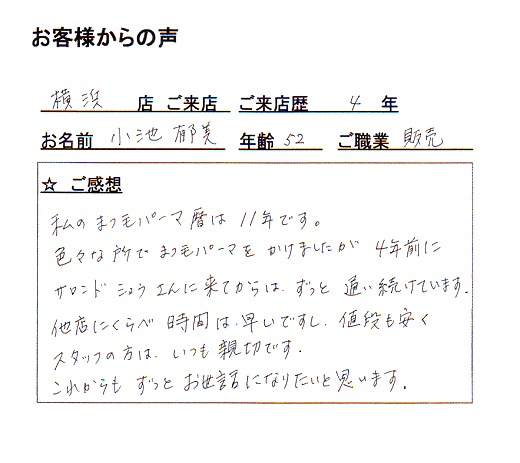 お客様からの声
横浜 店 ご来店 ご来店歴 4 年
お名前 小池 郁美 年齢 52 ご職業 販売
☆ ご感想
私のまつ毛パーマ暦は11年です。
色々な所でまつ毛パーマをかけましたが4年前に
サロンドシュウエんに来てからは、ずっと通い続けています。
他店にくらべ時間は、早いですし、値段も安く
スタッフの方は、いつも親切です。
これからもずっとお世話になりたいと思います。